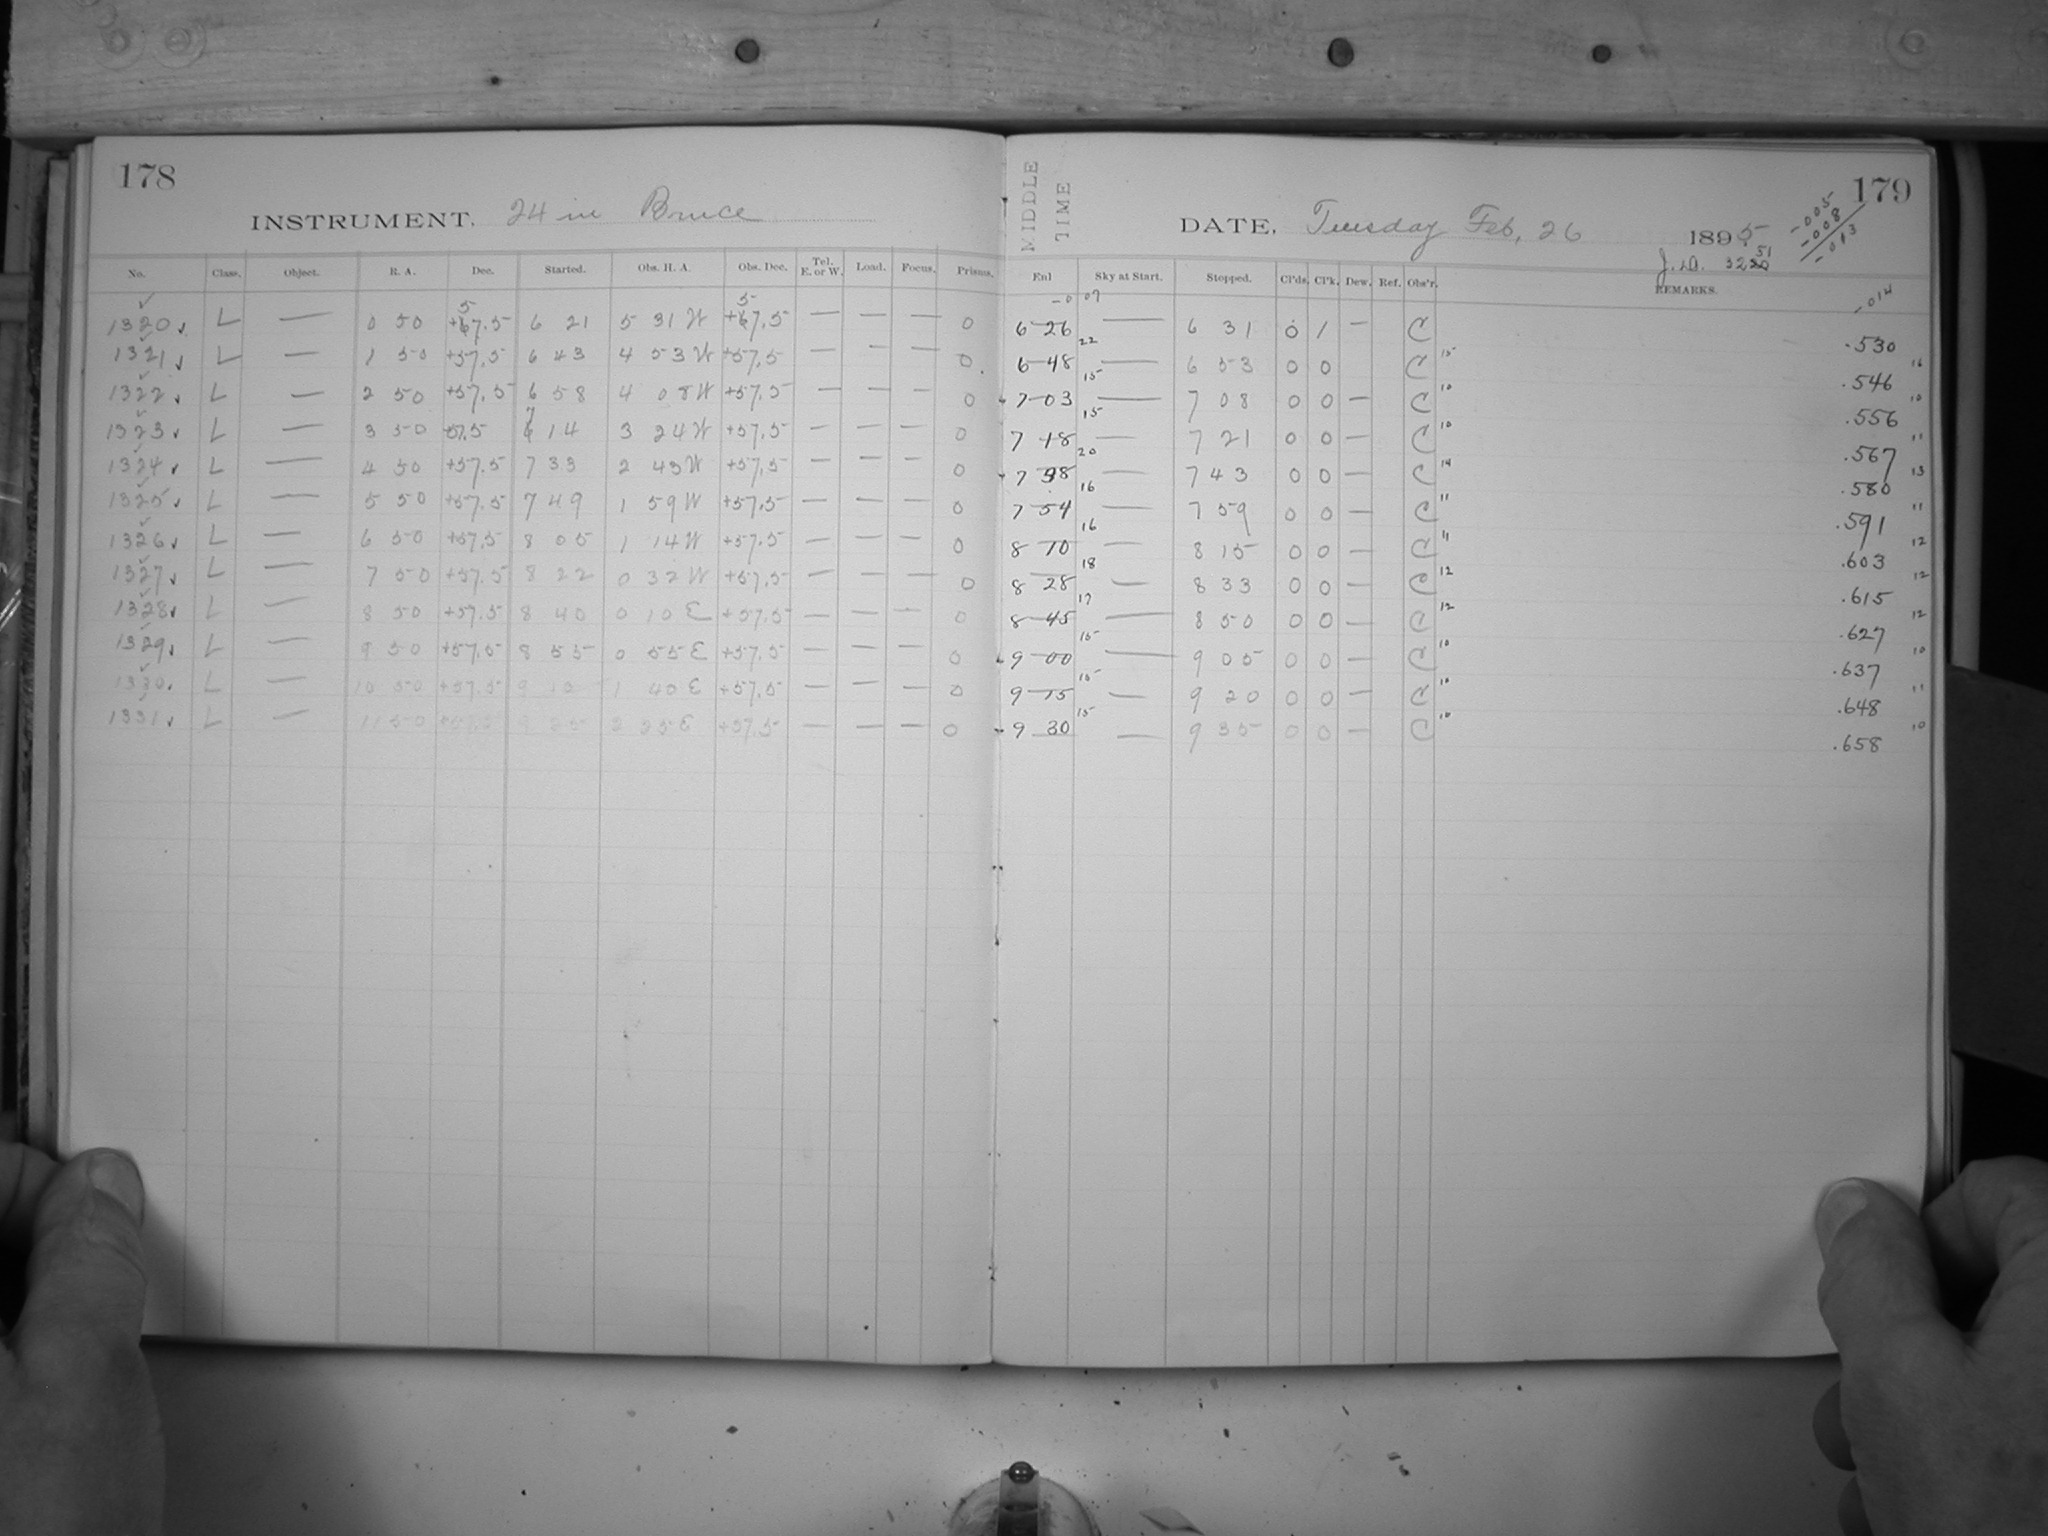 178
INSTRUMENT. 24 in Bruce
No. Class. Object. R. A. Dec. Started. Obs. H. A. Obs. Dec. Tel. E. or W. Load. Focus. Prisms.
1320 L — 0 50 +57.5 6 21 5 31 W +57.5 — — — 0
1321 L — 1 50 +57.5 6 43 4 53 W +57.5 — — — 0
1322 L — 2 50 +57.5 6 58 4 08 W +57.5 — — — 0
1323 L — 3 50 +57.5 7 14 3 24 W +57.5 — — — 0
1324 L — 4 50 +57.5 7 33 2 43 W +57.5 — — — 0
1325 L — 5 50 +57.5 7 49 1 59 W +57.5 — — — 0
1326 L — 6 50 +57.5 8 05 1 14 W +57.5 — — — 0
1327 L — 7 50 +57.5 8 22 0 32 W +57.5 — — — 0
1328 L — 8 50 +57.5 8 40 0 10 E +57.5 — — — 0
1329 L — 9 50 +57.5 8 55 0 55 E +57.5 — — — 0
1330 L — 10 50 +57.5 9 10 1 40 E +57.5 — — — 0
1331 L — 11 50 +57.5 9 25 2 25 E +57.5 — — — 0
MIDDLE TIME
179
DATE, Tuesday Feb, 26 1895
-005
-008
-013
J.D. 3251
Exp. Sky at Start. Stopped. Cl'ds. Cl'k. Dew. Ref. Obs'r. REMARKS.
-0 07 -014
6 26 — 6 31 0 1 — C .530
22
6 48 — 6 53 0 0 C 15 .546 16
15
7 03 — 7 08 0 0 — C 10 .556 10
15
7 18 — 7 21 0 0 — C 10 .567 11
20
7 38 — 7 43 0 0 — C 14 .580 13
16
7 54 — 7 59 0 0 — C 11 .591 11
16
8 10 — 8 15 0 0 — C 11 .603 12
18
8 28 — 8 33 0 0 — C 12 .615 12
17
8 45 — 8 50 0 0 — C 12 .627 12
15
9 00 — 9 05 0 0 — C 10 .637 10
15
9 15 — 9 20 0 0 — C 10 .648 11
15
9 30 — 9 35 0 0 — C 10 .658 10